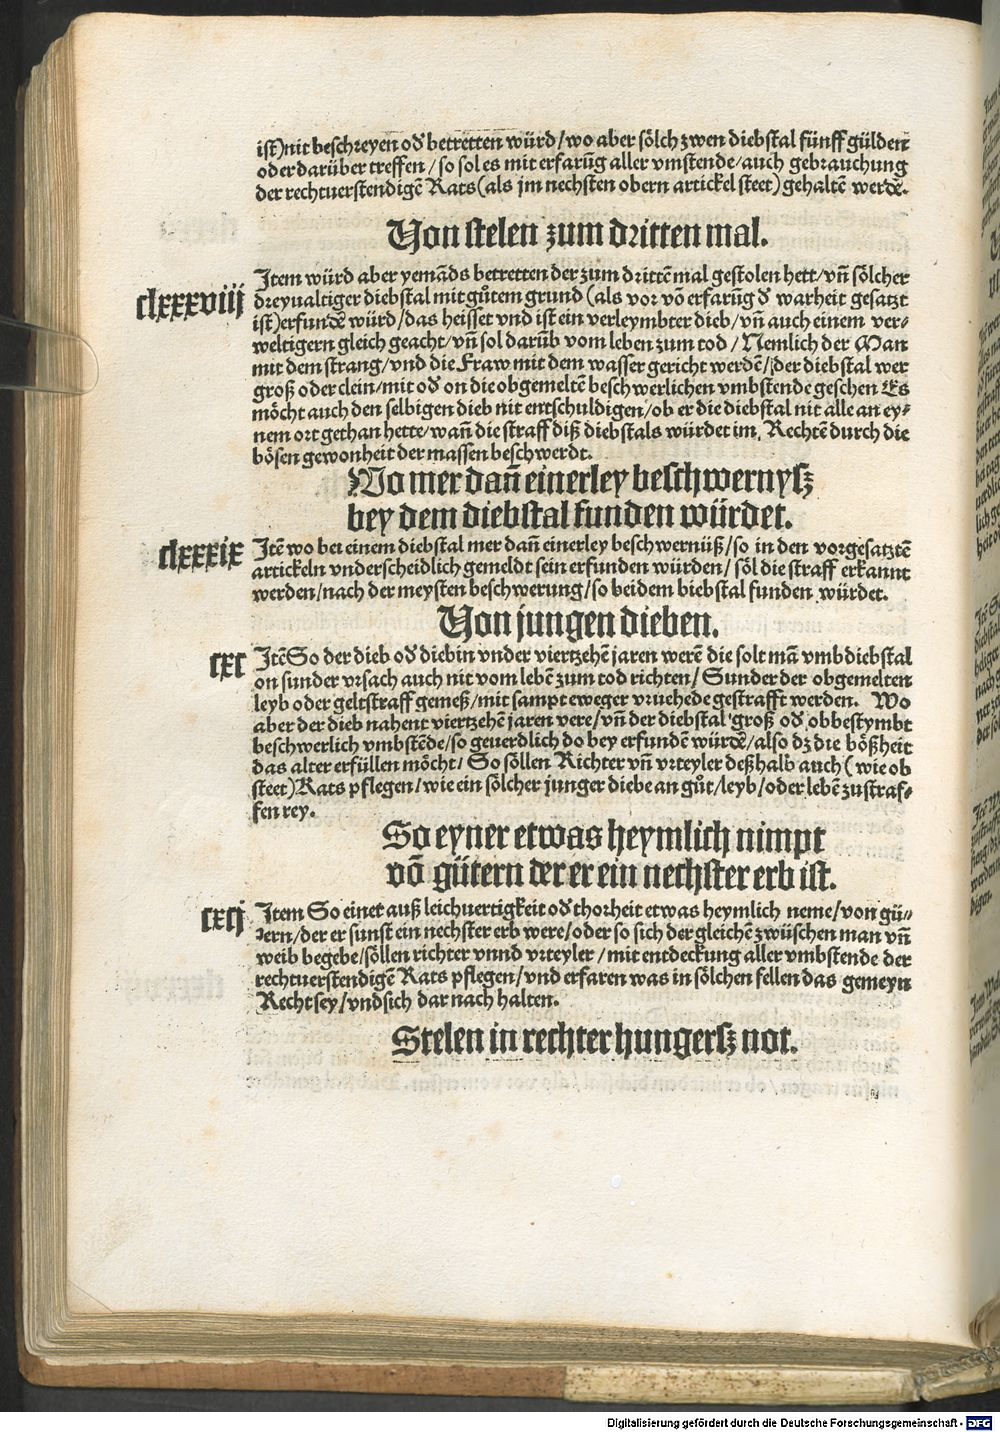 ist)nit beschreyen od̄ betretten würd/wo aber sölch zwen diebstal fünff gülden
oder darüber treffen/so sol es mit erfarūg aller vmstende/auch gebrauchung
der rechtuerstendigē Rats(als jm nechsten obern artickel steet)gehaltē werdē.
Von stelen zum dritten mal.
clxxxviij
Item würd aber yemāds betretten der zum drittē mal gestolen hett/vn̄ sölcher
dreyualtiger diebstal mit gůtem grund(als vor vō erfarūg d̄ warheit gesatzt
ist)erfundē würd/das heisset vnd ist ein verleymbter dieb/vn̄ auch einem ver-
weltigern gleich geacht/vn̄ sol darūb vom leben zum tod/Nemlich der Man
mit dem strang/vnd die Fraw mit dem wasser gericht werdē/der diebstal wer
groß oder clein/mit od̄ on die obgemeltē beschwerlichen vmbstende geschen Es
möcht auch den selbigen dieb nit entschuldigen/ob er die diebstal nit alle an ey-
nem ort gethan hette/wan̄ die straff diß diebstals würdet im Rechtē durch die
bösen gewonheit der massen beschwerdt.
Wo mer dan̄ einerley beschwernysz
bey dem diebstal funden würdet.
clxxxix
Itē wo bei einem diebstal mer dan̄ einerley beschwernüß/so in den vorgesatztē
artickeln vnderscheidlich gemeldt sein erfunden würden/söl die straff erkannt
werden/nach der meysten beschwerung/so bei dem biebstal funden würdet.
Von jungen dieben.
cxc
Itē So der dieb od̄ diebin vnder viertzehē jaren werē die solt mā vmb diebstal
on sunder vrsach auch nit vom lebē zum tod richten/Sunder der obgemelten
leyb oder geltstraff gemeß/mit sampt eweger vruehede gestrafft werden. Wo
aber der dieb nahent viertzehē jaren vere/vn̄ der diebstal groß od̄ obbestymbt
beschwerlich vmbstēde/so geuerdlich do bey erfundē würdē/also dz die bößheit
das alter erfüllen möcht/So söllen Richter vn̄ vrteyler deßhalb auch(wie ob
steet)Rats pflegen/wie ein sölcher junger diebe an gůt/leyb/oder lebē zu straf-
fen rey.
So eyner etwas heymlich nimpt
vō gütern der er ein nechster erb ist.
cxcj
Item So einer auß leichuertigkeit od̄ thorheit etwas heymlich neme/von gü-
tern/der er sunst ein nechster erb were/oder so sich der gleichē zwüschen man vn̄
weib begebe/söllen richter vnnd vrteyler/mit entdeckung aller vmbstende der
rechtuerstendigē Rats pflegen/vnd erfaren was in sölchen fellen das gemeyn
Recht sey/vnd sich dar nach halten.
Stelen in rechter hungersz not.
Digitalisierung gefördert durch die Deutsche Forschungsgemeinschaft - DFG